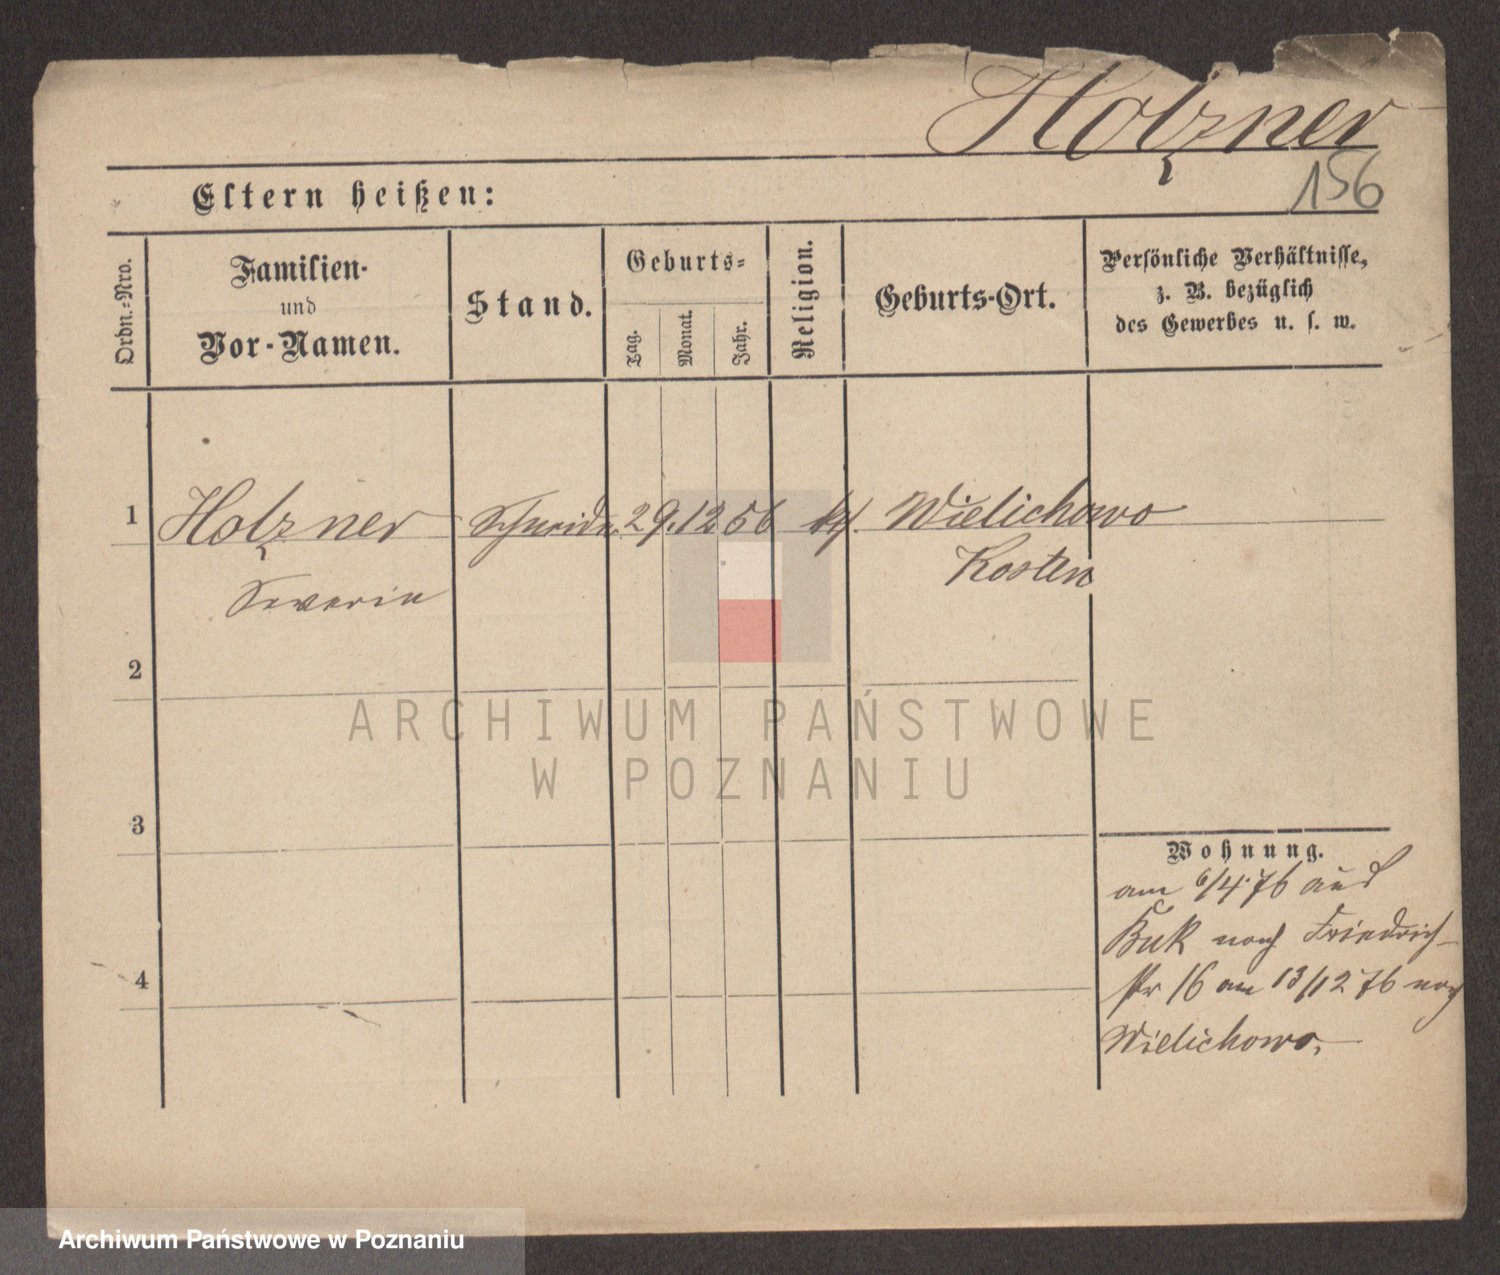 Holzner
156
Eltern heißen:
Ordn.-Nro.
Familien-
und
Vor-Namen.
Stand.
Geburts-
Tag.
Monat.
Jahr.
Religion.
Geburts-Ort.
Persönliche Verhältnisse,
z. B. bezüglich
des Gewerbes u. s. w.
1 Holzner Schneider 29. 12 56 kth. Wielichowo
Kosten
Severin
2
ARCHIWUM PAŃSTWOWE
W POZNANIU
3
Wohnung.
am 6/4. 76 aus
Buk nach Friedrich-
str 16 am 13/12 76 nach
Wielichowo.
4
Archiwum Państwowe w Poznaniu